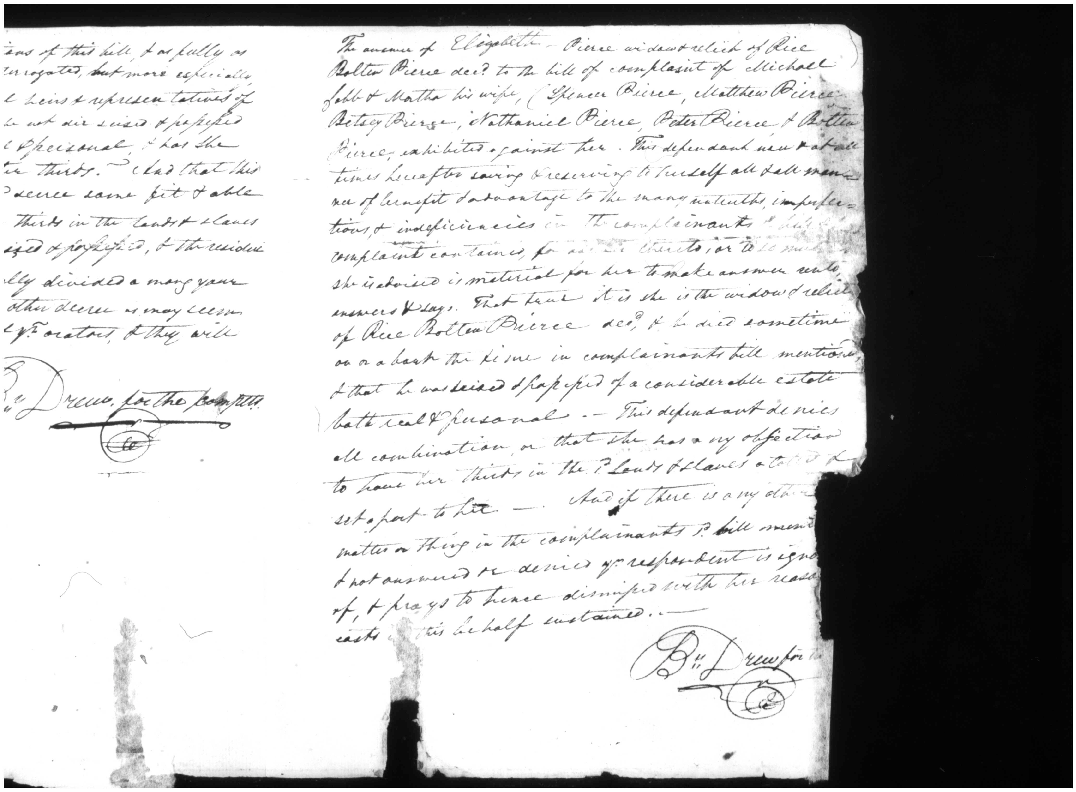 ions of this bill, & as fully as
terrogated, but more especially,
l heirs & representatives of
he not die seised & possessed
l & personal, & has she
er thirds. And that this
decree some fit & able
thirds in the lands & slaves
seised & possessed, & the residue
lly divided among your
other decree as may seem
& yr. orators, & they, will
Bn Drew, for the complts.
The answer of Elizabeth Pierce widow & relict of Rice
Bolten Pierce decd. to the bill of complaint of Michael
Cobb & Martha his wife, (Spencer Pierce, Matthew Pierce
Betsy Pierce, Nathaniel Pierce, Peter Pierce, & Bolten
Pierce, exhibited against her. This dependant now & at all
times hereafter saving & reserving to herself all & all man=
ner of benefit & advantage to the many untruths, imperfec=
tions, & indeficiencies in the complainants
complaint contained, for answer thereto, or to so much
she is advised is material for her to make answer unto,
answers & says. That true it is she is the widow & relict
of Rice Bolten Pierce decd, & he died sometime
on or about the time in complainants bill mentioned,
& that he was seised & possessed of a considerable estate
both real & personal. — This dependant denies
all combination, or that she has any objection
to have her thirds in the sd. Lands & slaves &
set apart to her —. And if there is any other
matter or thing in the complainants sd. bill men
& not answered or denied yr. respondent is igno
of, & prays to hence dismissed with her reaso
costs in this behalf sustained. —
Bn Drew for